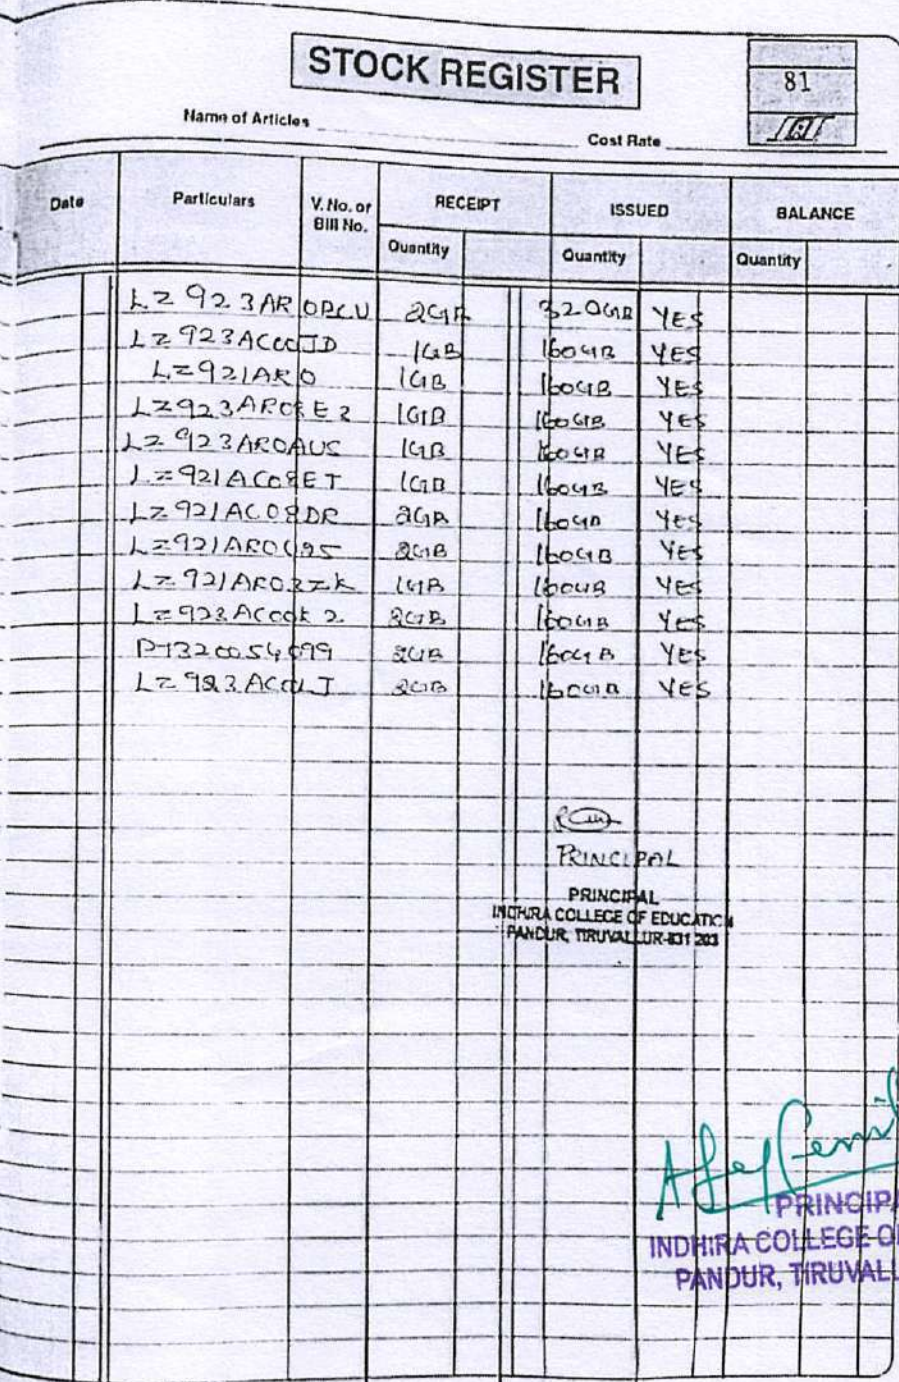 STOCK REGISTER
81
Name of Articles
Cost Rate
Date Particulars V. No. or Bill No. RECEIPT ISSUED BALANCE
Quantity Quantity Quantity
LZ923AR 2GB 320GB YES
LZ923AC00JD 1GB 160GB YES
LZ921ARO 1GB 160GB YES
LZ923AR08E2 1GB 160GB YES
LZ923AR0AUS 1GB 160GB YES
LZ921AC08ET 1GB 160GB YES
LZ921AC08DR 2GB 160GB YES
2GB 160GB YES
1GB 160GB YES
2GB 160GB YES
2GB 160GB YES
2GB 160GB YES
PRINCIPAL
PRINCIPAL
INDHIRA COLLEGE OF EDUCATION
PANDUR, TIRUVALLUR-631 203
PRINCIPA
INDHIRA COLLEGE O
PANDUR, TIRUVALL